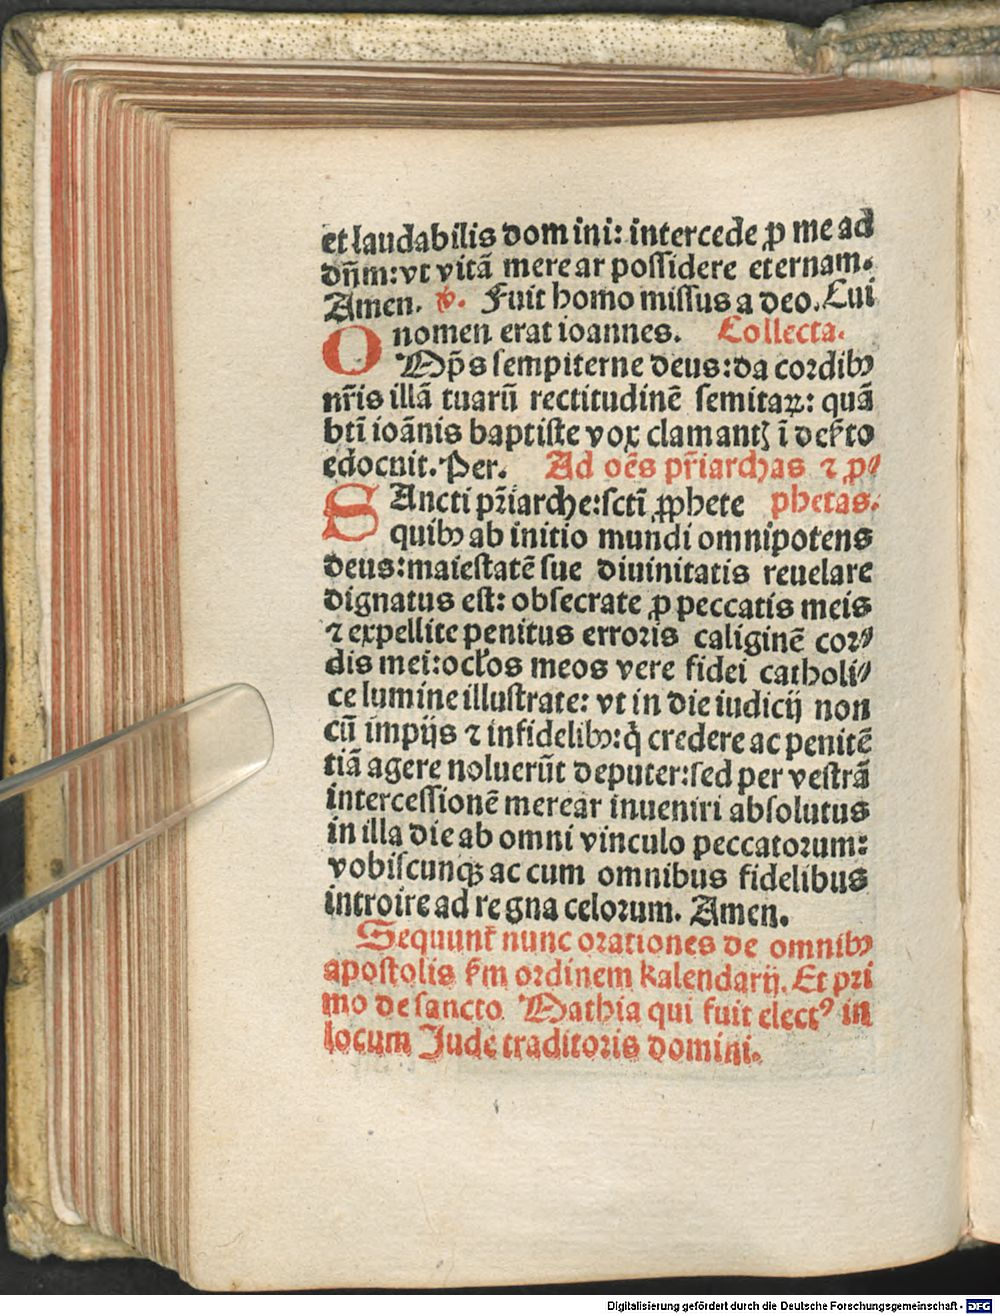 et laudabilis domini: intercede ꝓ me ad
dn̄m: vt vitā merear possidere eternam.
Amen. ℣. Fuit homo missus a deo. Cui
nomen erat ioannes. Collecta.
OMp̄s sempiterne deus: da cordibꝰ
nr̄is illā tuarū rectitudinē semitaꝝ: quā
bt̄i ioānis baptiste vox clamantꝭ ī dek̄to
edocuit. Per. Ad oēs pr̄iarchas ⁊ ꝓ⸗
SAncti pr̄iarche: sctī ꝓphete phetas.
quibꝰ ab initio mundi omnipotens
deus: maiestatē sue diuinitatis reuelare
dignatus est: obsecrate ꝓ peccatis meis
⁊ expellite penitus erroris caliginē cor⸗
dis mei: ocl̓os meos vere fidei catholi⸗
ce lumine illustrate: vt in die iudicij non
cū impijs ⁊ infidelibꝰ: q̇ credere ac penitē
tiā agere noluerūt deputer: sed per vestrā
intercessionē merear inueniri absolutus
in illa die ab omni vinculo peccatorum:
vobiscunqꝫ ac cum omnibus fidelibus
introire ad regna celorum. Amen.
Sequunt̄ nunc orationes de omnibꝰ
apostolis k̄m ordinem kalendarij. Et pri
mo de sancto Mathia qui fuit electꝰ in
locum Jude traditoris domini.
Digitalisierung gefördert durch die Deutsche Forschungsgemeinschaft - DFG